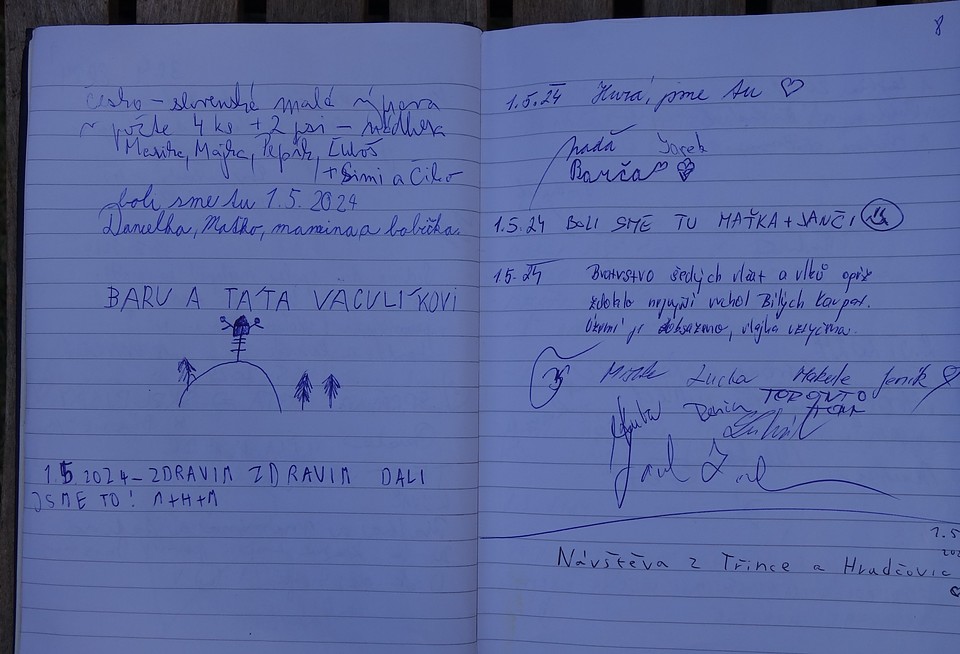 Česko – slovenské malá výprava
v počte 4 ks + 2 psi – nádhera
Majka, Pepík, Ľuboš
+ Simi a Čiko
boli sme tu 1.5.2024
Danielka, Maťko, mamina a babička.
BARU A TÁTA VACULÍKOVI
1.5.2024 – ZDRAVÍM ZDRAVÍM DALI
JSME TO! M+H+M
8
1.5.24 Hurá, jsme tu
Naďa Jacek
Barča
1.5.24 BOLI SME TU MAŤKA + JANČI
1.5.24 Bratrstvo šedých vlčat a vlků opět
zdolalo nejvyšší vrchol Bílých Karpat.
Území je dobyto, vlajka vztyčena.
Lucka Jeník
Kuba TORONTO
1.5
Návštěva z Třince a Hradčovic